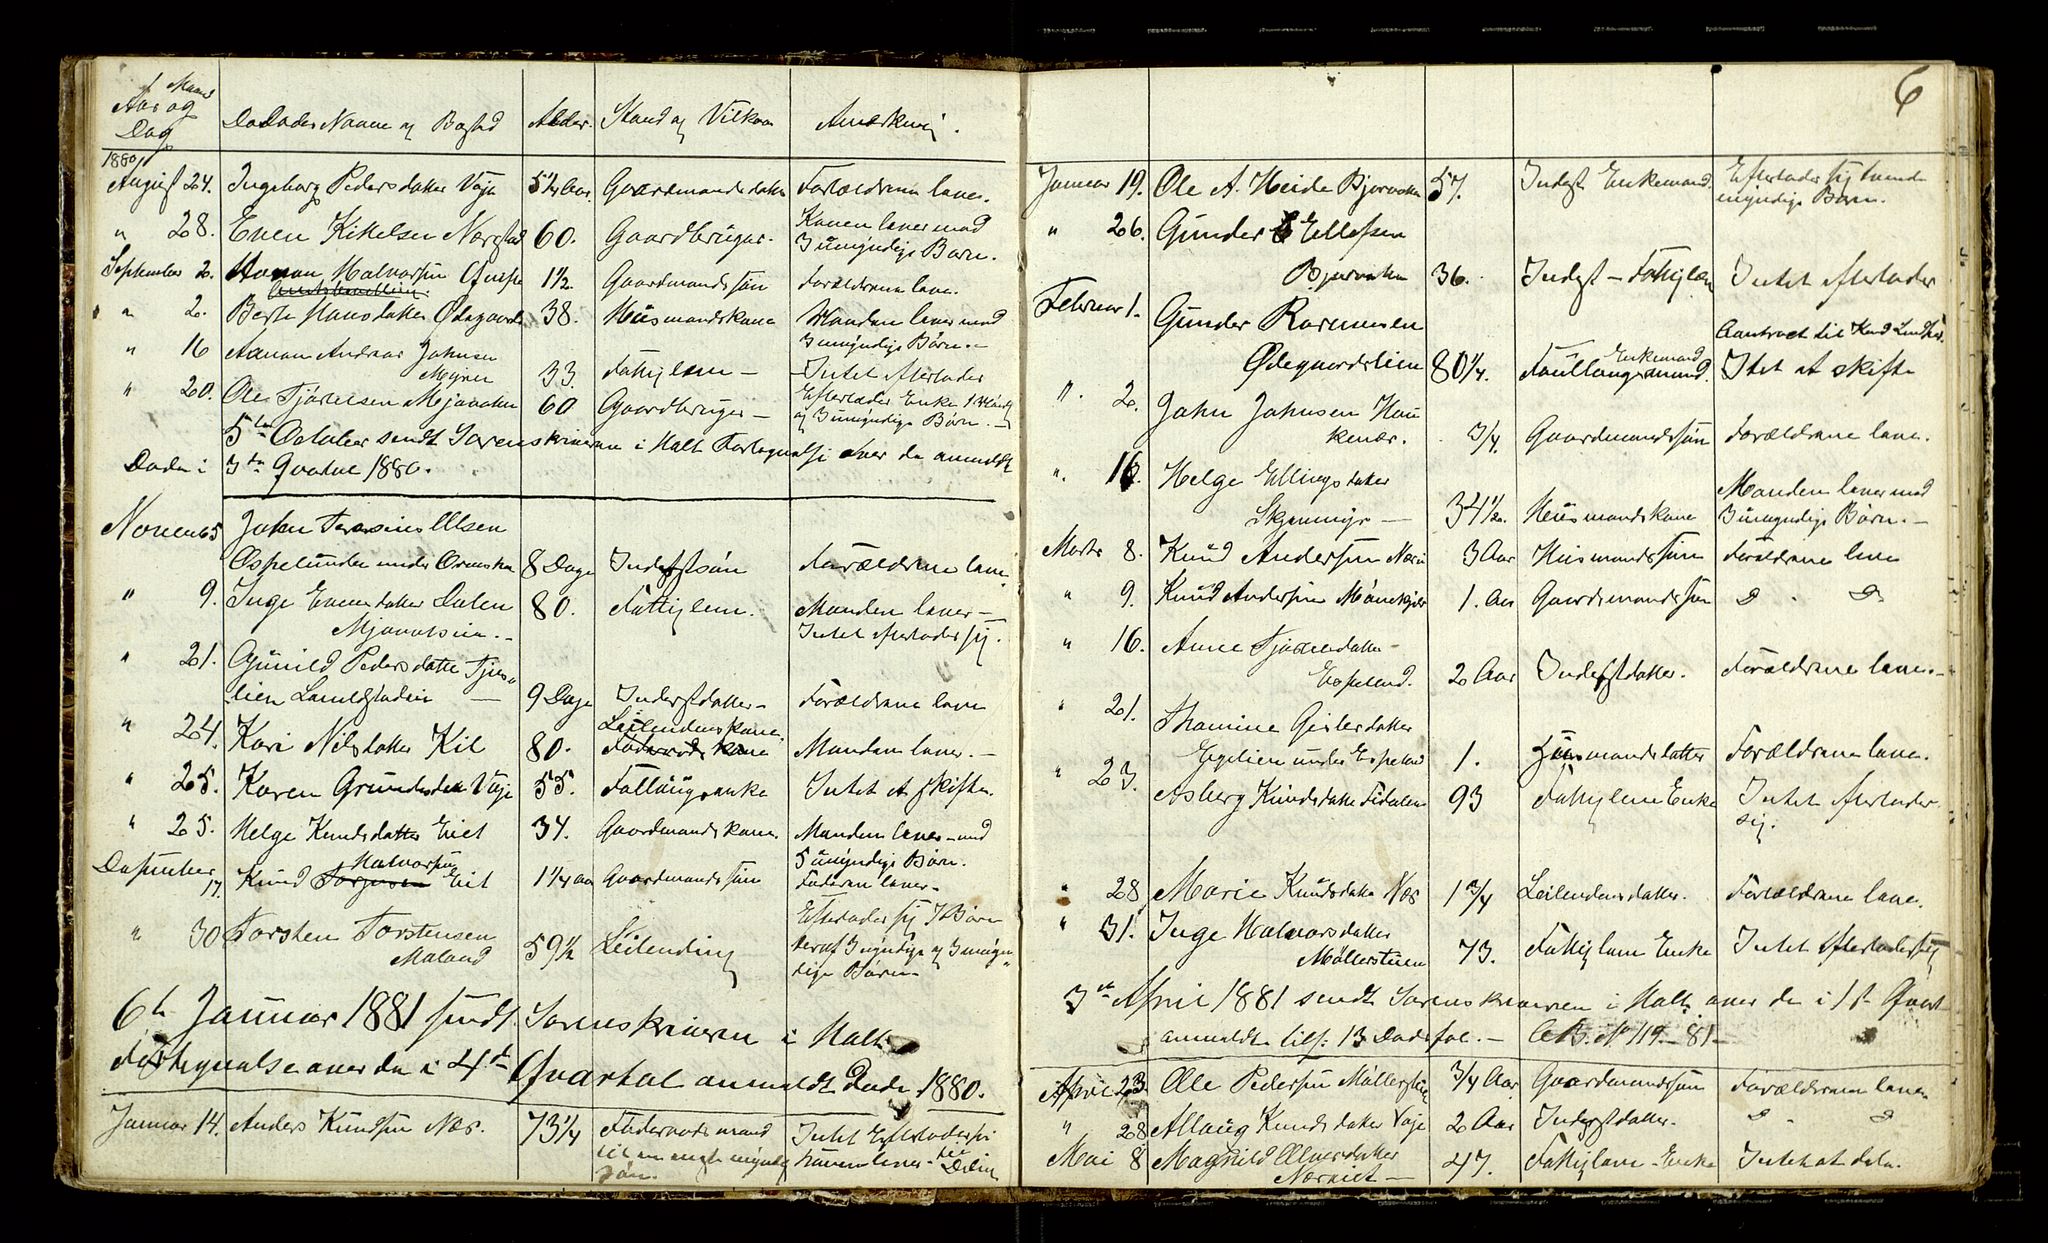 Maand
Aar og
Dag
Dødes Navne og Bosted
Alder.
Stand og Vilkaar
Anmerkning.
1880
August 24. Ingeborg Pedersdatter Vaje 5 1/4 Aar. Gaardmandsdatter Forældrene lever.
" 28. Even Kittelsen Nærestad 60. Gaardbruger. Konen lever med
3 umyndige Børn.
September 2. Halvorsen 1 1/2 Gaardmandssøn Forældrene lever.
" 2. Berte Hansdatter Ødegaarden 38. Husmandskone Manden lever med
3 umyndige Børn.
" 16 Aanon Andreas Johnsen
Myren 33. Fattiglem — Intet efterlader
" 20. Ole Tjøstelsen Mjaavatn 60 Gaardbruger — Efterlader Enke
og 3 umyndige Børn.
5te October sendt Sorenskriveren i Holt Fortegnelse over de anmeldte
Døde i 3die Qvartal 1880.
Novemb 5 John Olsen
Espelunden under 8 Dage Inderstsøn Forældrene lever.
" 9. Inge Evensdatter Dalen
80. Fattiglem. Manden lever —
Intet efterlader sig.
" 21. Gunild Pedersdatter
lien 9 Dage Inderstdatter — Forældrene lever
" 24. Kari Nilsdatter Kil 80. Leilendingskone
Føderaadskone Manden lever. —
" 25. Karen Gundersdatter Vaje 55. Intet at skifte.
" 25. Helge Knudsdatter Eiet 34. Gaardmandskone. Manden lever med
5 umyndige Børn.
December 17. Knud Halvorsen Torgersen Eiet 1 1/4 aar Gaardmandssøn Faderen lever.
" 30 Torsten Torstensen
Moland 59 1/2 Leilending Efterlader sig 7 Børn
deraf myndige og 3 umyn
dige Børn
6te Januar 1881 sendt Sorenskriveren i Holt
Fortegnelse over de i 4de Qvartal anmeldte Døde 1880.
Januar 14. Anders Knudsen Næs. 73 1/4 Føderaadsmand
Intet Efterlader sig
konen lever
6
Januar 19. Ole A. Heide Bjorvatn 57. Inderst Enkemand. Efterlader sig tvende
myndige Børn.
" 26. Gunder Ellefsen
Bjorvatn 36. Inderst — Fattiglem Intet efterlader
Februar 1. Gunder Rasmusen
Ødegaardslien 80 1/4. Enkemand Intet at skifte
" 2. John Johnsen Hau
kenær. 3/4 Gaardmandssøn Forældrene lever.
" 16. Helge Ellingsdatter
34 1/2. Husmandskone Manden lever med
3 umyndige Børn. —
Marts 8. Knud Andersen 3 Aar Husmandssøn Forældrene lever
" 9. Knud Andersen 1. Aar Gaardmandssøn D . D
" 16. Anne
Espelund. 2 Aar Inderstdatter. Forældrene lever. —
" 21. Thomine Geisledatter
under Espelund 1. Husmandsdatter Forældrene lever.
" 23. Asberg Knudsdatter Fidalen 93 Fattiglem Enke Intet efterlader
sig.
" 28 Marie Knudsdatter Næs 1 3/4 Leilendingsdatter. Forældrene lever.
" 31. Inge Halvorsdatter
Møllerstuen 73. Fattiglem Enke Intet efterlader sig
3de April 1881 sendt Sorenskriveren i Holt over de i 1ste Qvart
anmeldte tils: 13 Dødsfal. — C.B. No 119 — 81 —
April 23 Ole Pedersen 3/4 Aar Gaardmandssøn Forældrene lever
" 28 Aslaug Knudsdatter Vaje 2 Aar Inderstdatter. D . D
Mai 8 Magnild Olversdatter
47. Fattiglem — Enke Intet at dele.